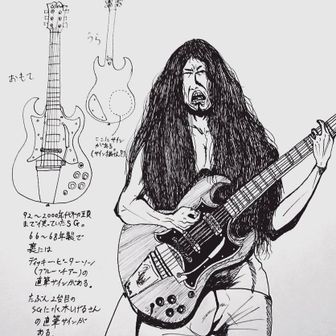 おもて
うら
ここにサイン
がある。
92〜2000年代初頭
まで使っていたSG。
66〜68年製で
裏には
ディッキー・ピーターソン
(ブルーチアー)の
直筆サインがある。
たぶん2番目の
SGに水木しげるさん
の直筆サインが
ある